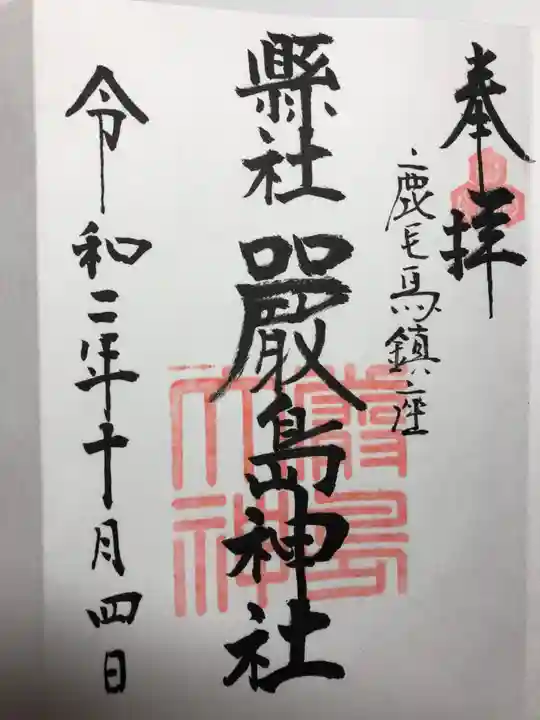 奉拝
鹿毛馬鎮座
縣社 嚴島神社
令和二年十月四日
嚴島大神